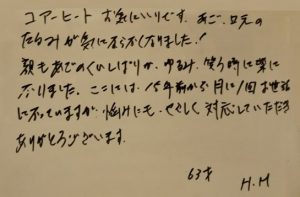 コアーヒート お気にいりです。あご、口元の
たるみが気にならなくなりました!
顔もあごのくいしばりが、ゆるみ、笑う時に楽に
なりました。ここには、15年前から月に1回お世話
になっていますが いつも、やさしく対応していただき
ありがとうございます。
63才 H.M